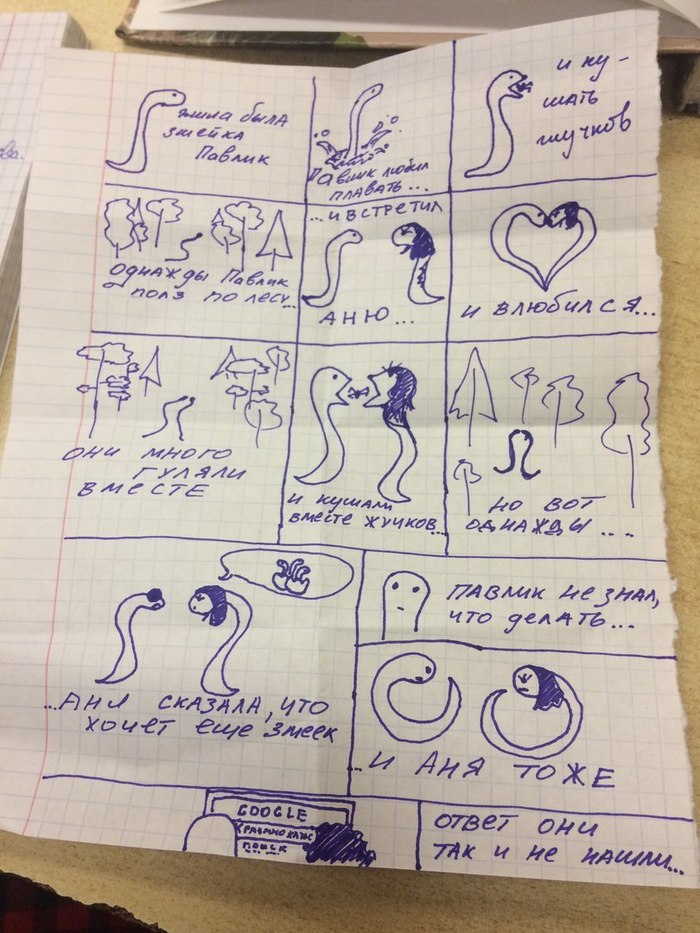 жила была
змейка
Павлик
Павлик любил
плавать...
и ку-
шать
жучков
однажды Павлик
полз по лесу...
...и встретил
Аню...
и влюбился...
они много
гуляли
вместе
и кушали
вместе жучков...
но вот
однажды....
...Аня сказала, что
хочет еще змеек
Павлик не знал,
что делать...
...и Аня тоже
GOOGLE
поиск
ответ они
так и не нашли...